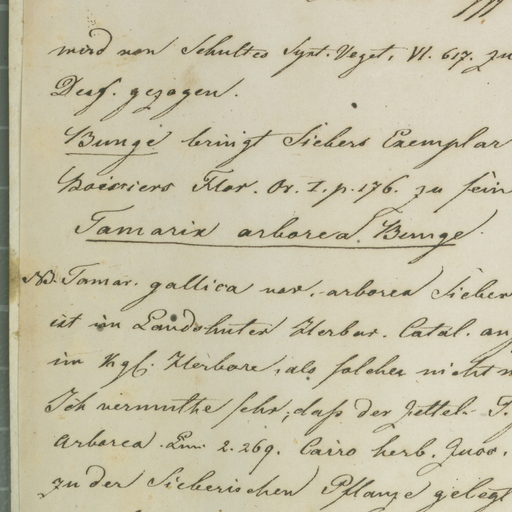 wird von Schultes Syst. Veget. VI. 617. zu
Desf. gezogen.
Bunge bringt Siebers Exemplar
Boissiers Flor. Or. I. p. 176. zu sein
Tamarix arborea Bunge.
NB. Tamar. gallica var. arborea Sieber
ist im Landshuter Herbar. Catal. an
im Kgl. Herbare, als solches nicht
Ich vermuthe sehr, daß der Zettel T.
arborea 2. 269. Cairo herb.
zu der Sieberischen Pflanze gelegt